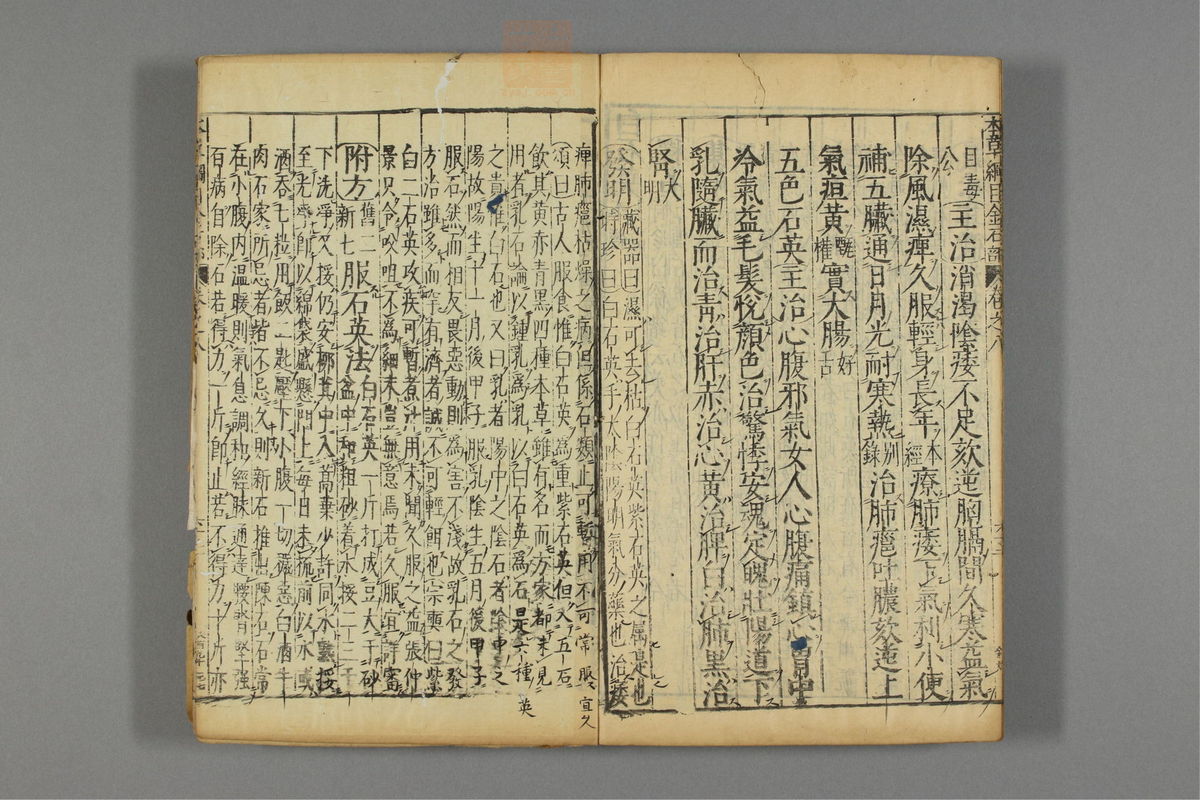 本草綱目金石部 卷之八
目毒
公 主治消渴陰痿不足欬逆胸膈間久寒益氣
除風濕痺久服輕身長年本經療肺痿下氣利小便
補五臟通日月光耐寒熱別錄治肺癰吐膿欬逆上
氣疸黃甄權實大腸好古
五色石英主治心腹邪氣女人心腹痛鎮心胃中
冷氣益毛髮悅顏色治驚悸安魂定魄壯陽道下
乳隨臟而治青治肝赤治心黃治脾白治肺黑治
腎大明
發明藏器曰濕可去枯白石英紫石英之屬是也
時珍曰白石英手太陰陽明氣分藥也治痿
痺肺癰枯燥之病但係石類止可暫用不可常服宜久
頌曰古人服食惟白石英為重紫石英但入五石
飲其黃赤青黑四種本草雖有名而方家都未見
用者乳石論以鍾乳為乳以白石英為石是六種英
之貴惟白石也又曰乳者陽中之陰石者陰中之
陽故陽生十一月後甲子服乳陰生五月後甲子
服石然而相反畏惡動則為害不淺故乳石之發
方治雖多而罕有濟者誠不可輕餌也宗奭曰紫
白二石英攻疾可暫煮汁用未聞久服之益張仲
景只令㕮咀不為細末豈無意焉若久服宜詳審
附方舊二新七服石英法白石英一斤打成豆大于砂
盆中和粗砂着水挼二三千
下洗淨又挼仍安柳箕中入蒿葉少許同水熟挼
至光淨即以綿袋盛懸門上每日未梳前以水或
酒吞七粒用飯二匙壓下小腹一切穢惡白酒牛
肉石家所忌者皆不忌久則新石推出陳石石常
在小腹内温暖則氣息調和經脉通達腰腎堅强
百病自除石若得力一斤即止若不得力十斤亦